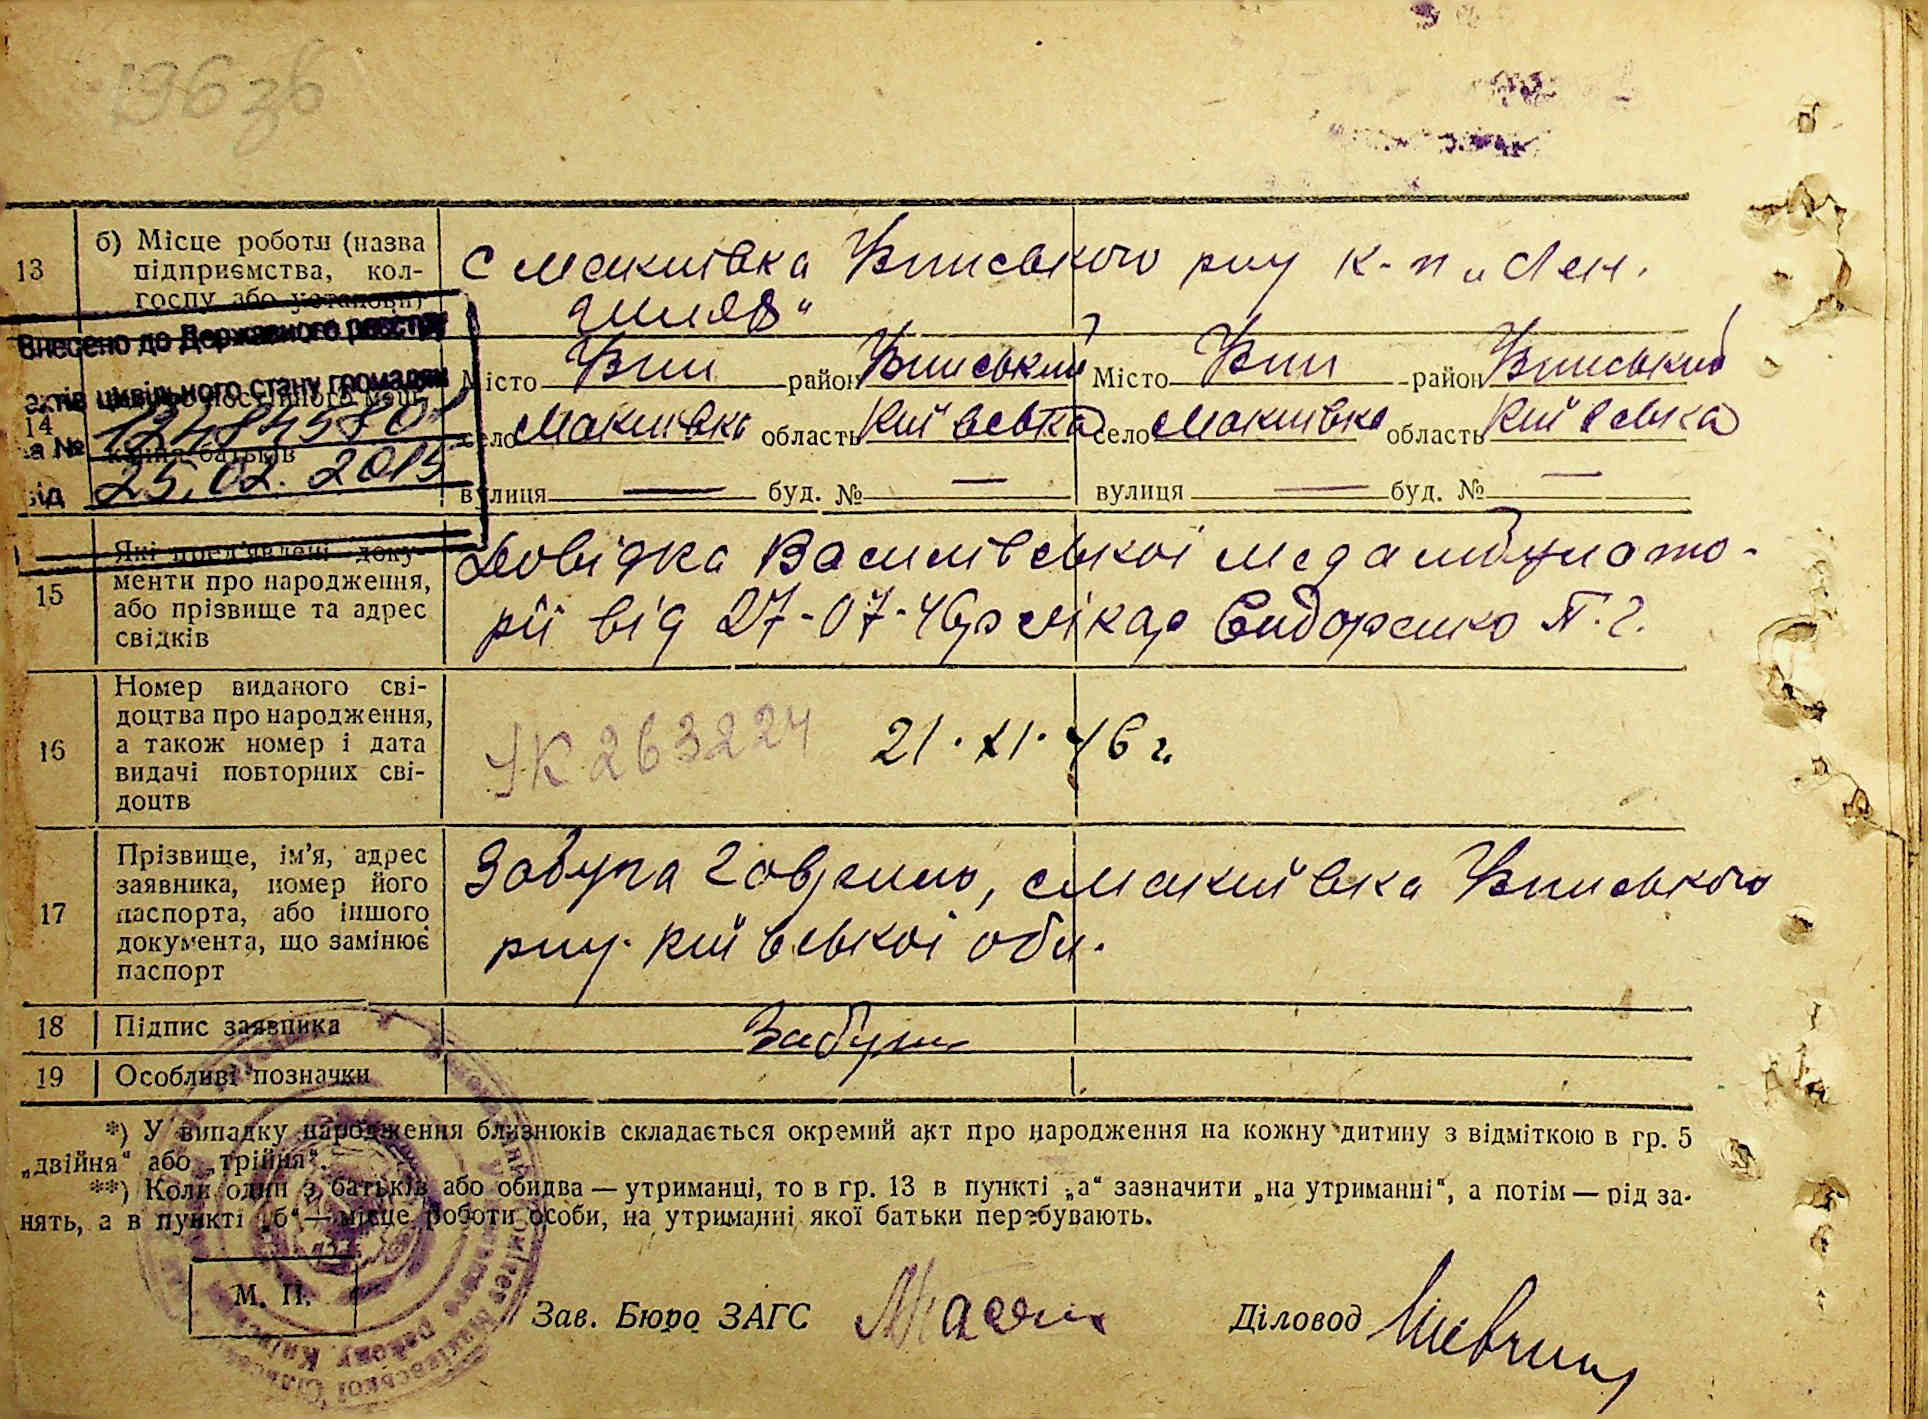 136 зв
13 б) Місце роботи (назва підприємства, кол-
госпу або установи)
с Макиівка Узинського р-ну к-п „Лен.
шлях“
Внесено до Державного реєстру
актів цивільного стану громадян
за № 12484580
від 25.02.2015
14
кання батьків
Місто Узин район Узинський Місто Узин район Узинський
село Макиівка область Київська село Макиівка область Київська
вулиця — буд. № — вулиця — буд. № —
15 Які пред'явлені доку-
менти про народження,
або прізвище та адрес
свідків
Довідка Василівської медамбулато-
рії від 27-07-46р лікар Сидоренко П. Г.
16 Номер виданого сві-
доцтва про народження,
а також номер і дата
видачі повторних сві-
доцтв
УК 263224 21. XI. 46 г.
17 Прізвище, ім'я, адрес
заявника, номер його
паспорта, або іншого
документа, що замінює
паспорт
с Макиївка Узинського
р-ну. Київської обл.
18 Підпис заявника
19 Особливі позначки
*) У випадку народження близнюків складається окремий акт про народження на кожну дитину з відміткою в гр. 5
„двійня“ або „трійня“.
**) Коли один з батьків або обидва — утриманці, то в гр. 13 в пункті „а“ зазначити „на утриманні“, а потім — рід за-
нять, а в пункті „б“ — місце роботи особи, на утриманні якої батьки перебувають.
М. П.
Зав. Бюро ЗАГС
Діловод